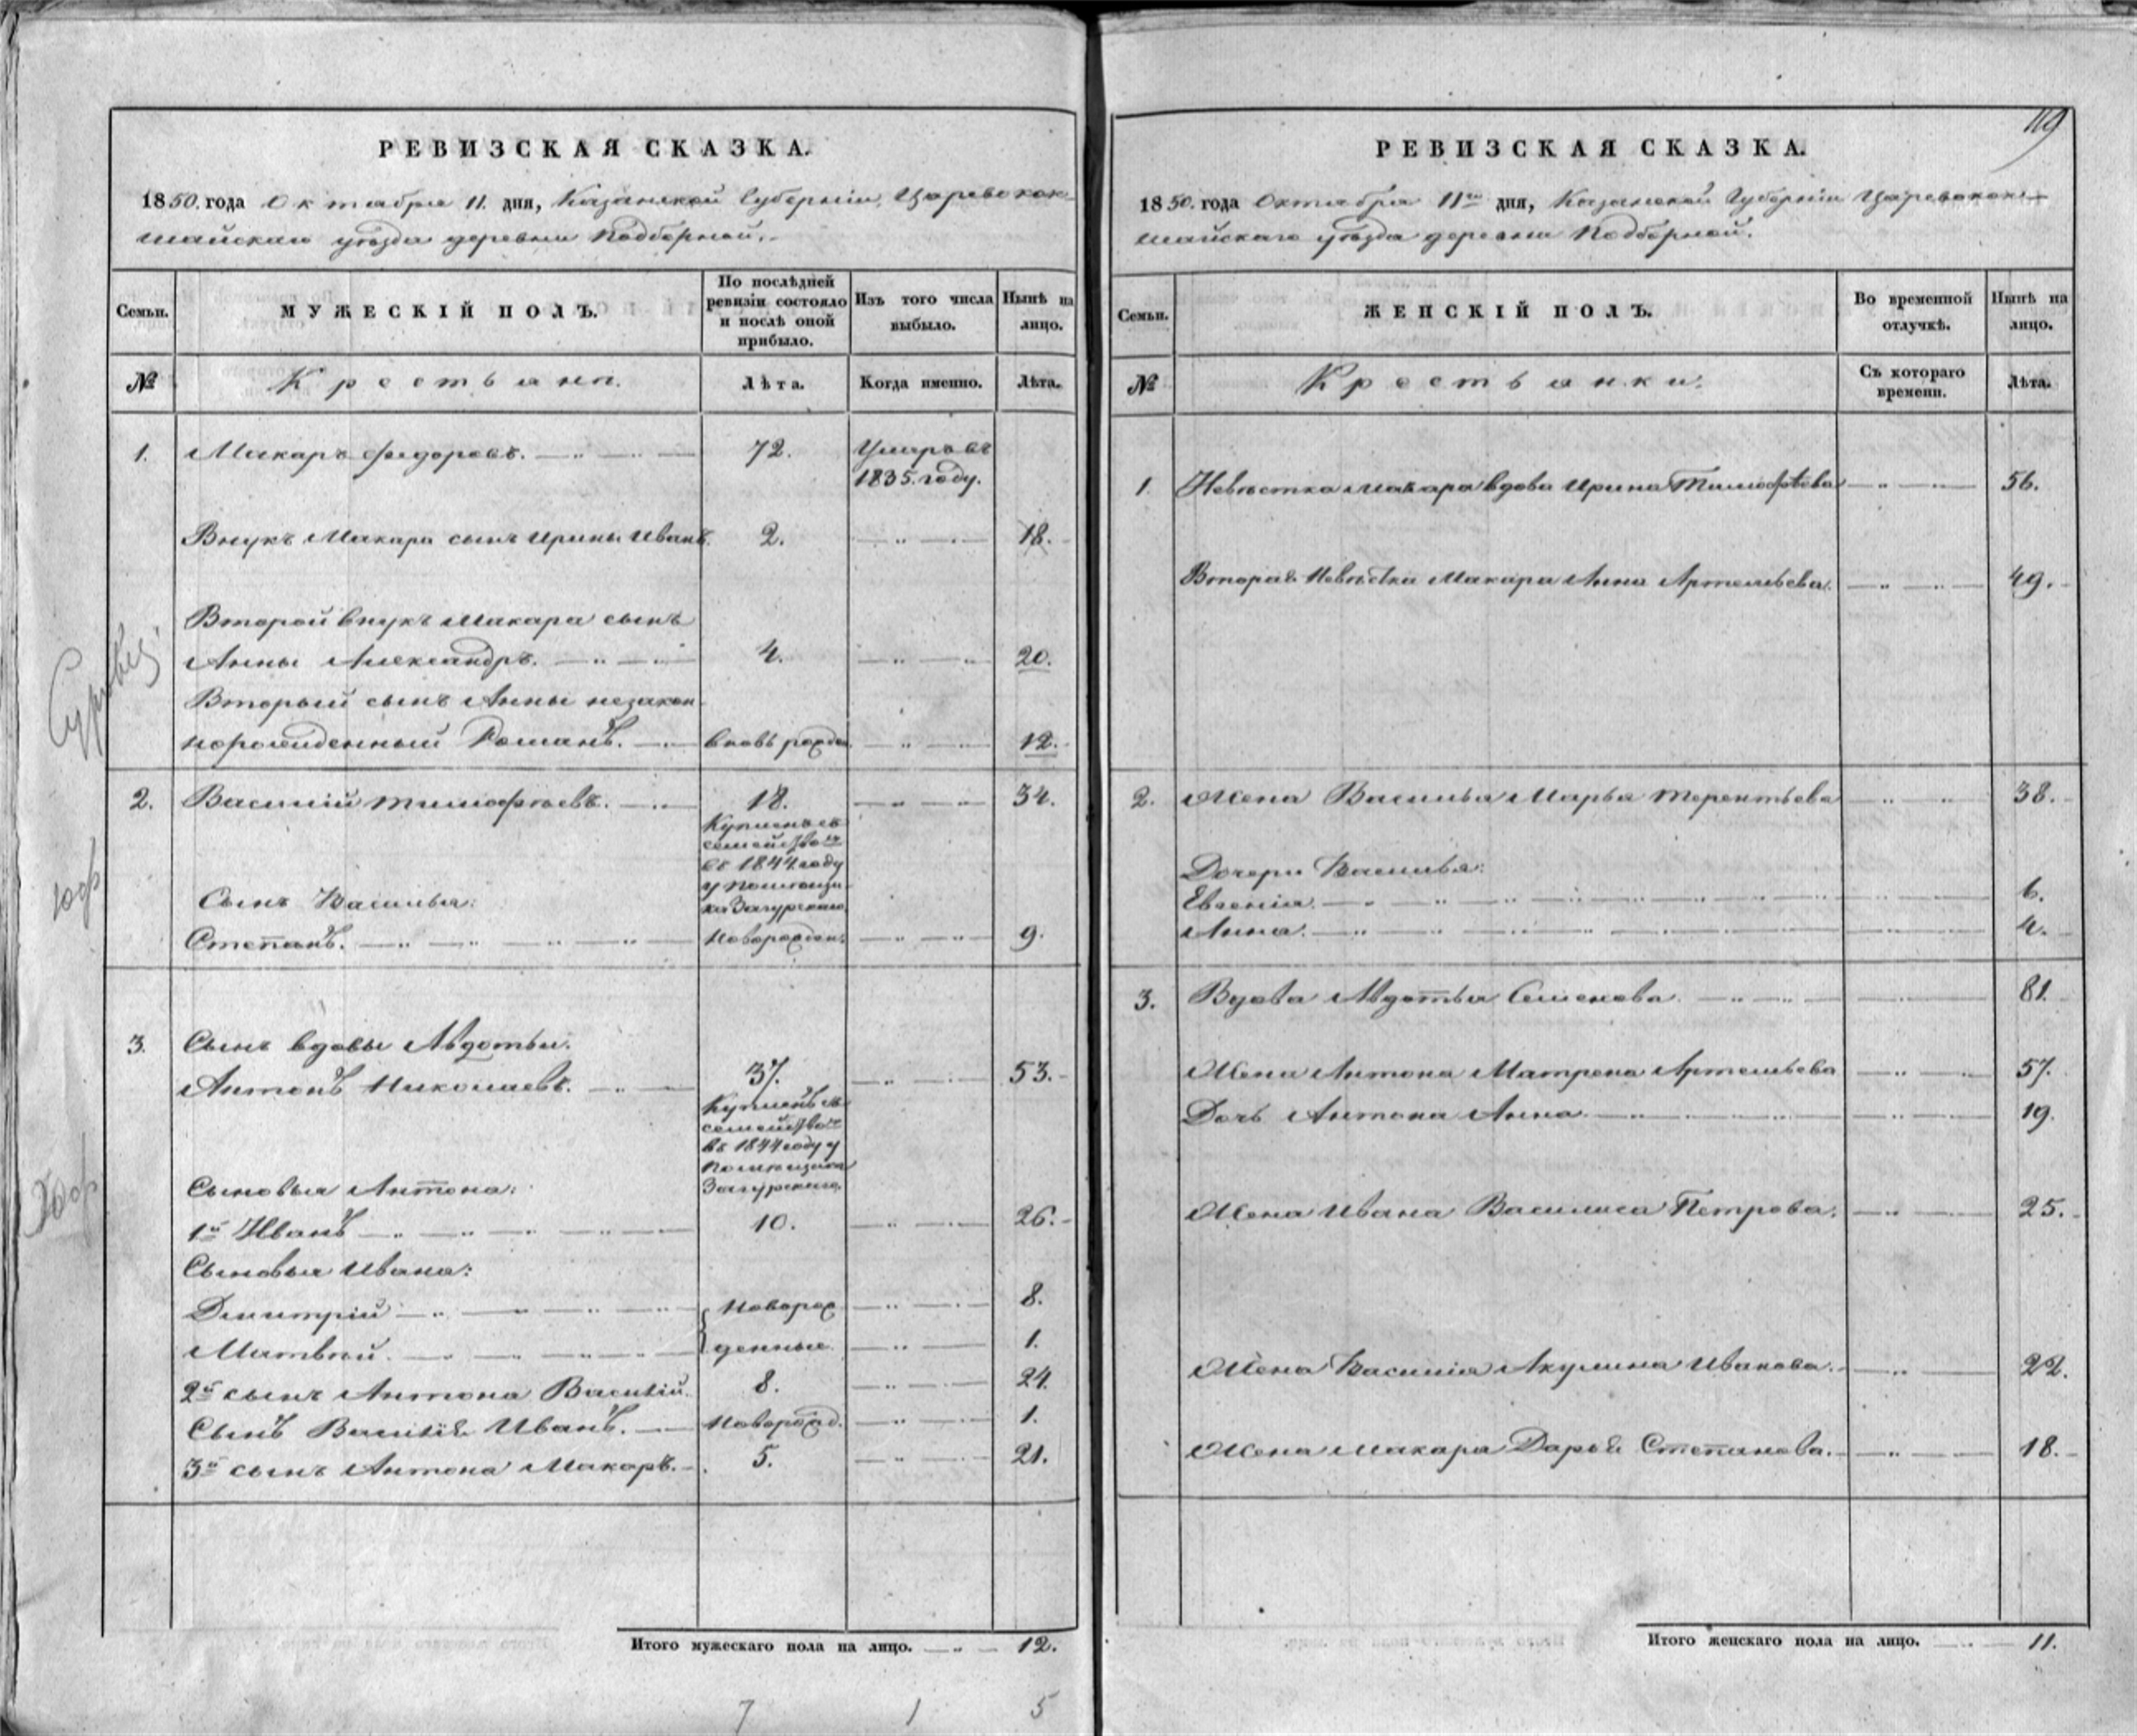 РЕВИЗСКАЯ СКАЗКА.
1850. года Октября 11. дня, Казанской Губерніи, Царевокок-
шайскаго уѣзда деревни Подборной.
Семьи.
МУЖЕСКІЙ ПОЛЪ.
По послѣдней ревизіи состояло и послѣ оной прибыло.
Изъ того числа выбыло.
Нынѣ на лицо.
№ Крестьяне. Лѣта. Когда именно. Лѣта.
1. Макаръ Федоровъ. 72. Умеръ въ
1835. году.
Внукъ Макара сынъ Ирины Иванъ. 2. 18.
Второй внукъ Макара сынъ
Анны Александръ. 4. 20.
Вторый сынъ Анны незакон-
норожденный Романъ. вновь рожден. 12.
2. Василій Тимофѣевъ. 18. 34.
Купленъ съ
семейство
въ 1844 году
у помѣщи-
ка Загурскаго
Сынъ Василья:
Степанъ. Новорожден. 9.
3. Сынъ вдовы Авдотьи.
Антонъ Николаевъ. 37. 53.
Купленъ съ
семейство
въ 1844 году у
помѣщика
Загурскаго.
Сыновья Антона:
1й Иванъ 10. 26.
Сыновья Ивана:
Дмитрій Новорож 8.
Матвѣй. денные. 1.
2й сынъ Антона Василій. 8. 24.
Сынъ Василія Иванъ. Новорожд. 1.
3й сынъ Антона Макаръ. 5. 21.
Итого мужескаго пола на лицо. 12.
7 1 5
119
РЕВИЗСКАЯ СКАЗКА.
1850. года Октября 11го дня, Казанской Губерніи Царевокок-
шайскаго уѣзда деревни Подборной.
Семьи.
ЖЕНСКІЙ ПОЛЪ.
Во временной отлучкѣ.
Нынѣ на лицо.
№ Крестьянки. Съ котораго времени. Лѣта.
1. Невѣстка Макара вдова Ирина Тимофѣева 56.
Вторая Невѣстка Макара Анна Артемьева. 49.
2. Жена Василья Марья Терентьева 38.
Дочери Василья:
Евгенія. 6.
Анна. 4.
3. Вдова Авдотья Семенова. 81.
Жена Антона Матрена Артемьева 57.
Дочь Антона Анна. 19.
Жена Ивана Василиса Петрова. 25.
Жена Василія Акулина Иванова. 22.
Жена Макара Дарья Степанова. 18.
Итого женскаго пола на лицо. 11.